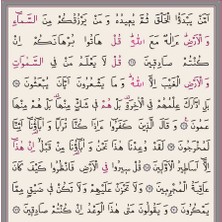 أَمَّنْ يَبْدَؤُا الْخَلْقَ ثُمَّ يُعِيدُهُ وَ مَنْ يَرْزُقُكُمْ مِنَ السَّمَاءِ
وَ الْأَرْضِ أَإِلَهٌ مَعَ اللَّهِ قُلْ هَاتُوا بُرْهَانَكُمْ إِنْ
كُنْتُمْ صَادِقِينَ ۝ قُلْ لَا يَعْلَمُ مَنْ فِي السَّمَوَاتِ
وَ الْأَرْضِ الْغَيْبَ إِلَّا اللَّهُ وَ مَا يَشْعُرُونَ أَيَّانَ يُبْعَثُونَ ۝
بَلِ ادَّارَكَ عِلْمُهُمْ فِي الْآخِرَةِ بَلْ هُمْ فِي شَكٍّ مِنْهَا بَلْ هُمْ مِنْهَا
عَمُونَ ۝ وَ قَالَ الَّذِينَ كَفَرُوا أَإِذَا كُنَّا تُرَابًا وَ آبَاؤُنَا أَئِنَّا
لَمُخْرَجُونَ ۝ لَقَدْ وُعِدْنَا هَذَا نَحْنُ وَ آبَاؤُنَا مِنْ قَبْلُ إِنْ هَذَا
إِلَّا أَسَاطِيرُ الْأَوَّلِينَ ۝ قُلْ سِيرُوا فِي الْأَرْضِ فَانْظُرُوا كَيْفَ كَانَ
عَاقِبَةُ الْمُجْرِمِينَ ۝ وَ لَا تَحْزَنْ عَلَيْهِمْ وَ لَا تَكُنْ فِي ضَيْقٍ مِمَّا
يَمْكُرُونَ ۝ وَ يَقُولُونَ مَتَى هَذَا الْوَعْدُ إِنْ كُنْتُمْ صَادِقِينَ ۝